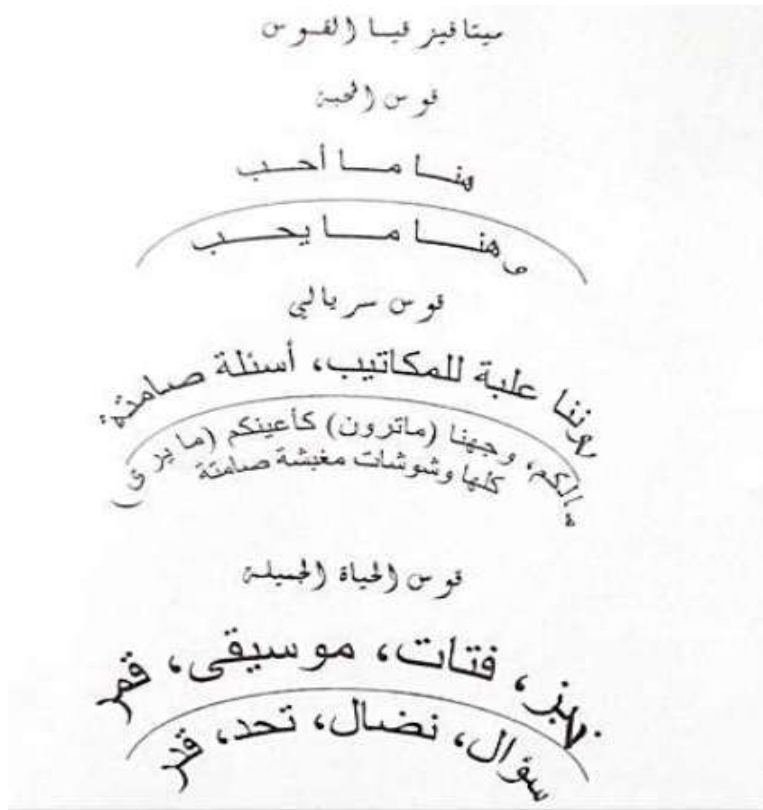 ميتافيزفيا القوس
قوس المحبة
هنا ما أحب
وهنا ما يحب
قوس سريالي
علبة للمكاتيب، أسئلة صامتة
مالكم، وجهنا (ماترون) كأعينكم (ما يرى)
كلها وشوشات مغبشة صامتة
قوس الحياة الجميلة
خبز، فتات، موسيقى، قمر
سؤال، نضال، تحد، قدر